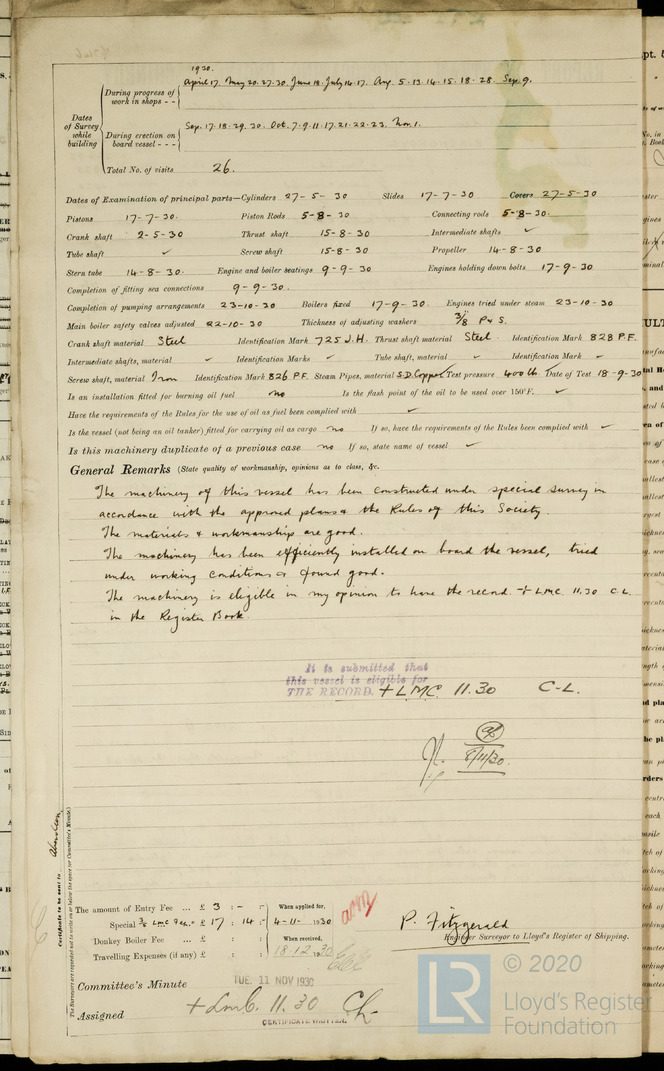 1930.
During progress of work in shops - - April 17. May 20. 27. 30. June 18. July 14. 17. Aug. 5. 13. 14. 15. 18. 28. Sep. 9.
Dates of Survey while building
During erection on board vessel - - - Sep. 17. 18. 29. 30. Oct. 7. 9. 11. 17. 21. 22. 23. Nov. 1.
Total No. of visits 26.
Dates of Examination of principal parts—Cylinders 27-5-30 Slides 17-7-30 Covers 27-5-30
Pistons 17-7-30. Piston Rods 5-8-30 Connecting rods 5-8-30.
Crank shaft 2-5-30 Thrust shaft 15-8-30 Intermediate shafts ✓
Tube shaft ✓ Screw shaft 15-8-30 Propeller 14-8-30
Stern tube 14-8-30. Engine and boiler seatings 9-9-30 Engines holding down bolts 17-9-30
Completion of fitting sea connections 9-9-30.
Completion of pumping arrangements 23-10-30 Boilers fixed 17-9-30. Engines tried under steam 23-10-30
Main boiler safety valves adjusted 22-10-30 Thickness of adjusting washers 3/8 P & S.
Crank shaft material Steel Identification Mark 725 J.H. Thrust shaft material Steel Identification Mark 828 P.F.
Intermediate shafts, material ✓ Identification Marks ✓ Tube shaft, material ✓ Identification Mark ✓
Screw shaft, material Iron Identification Mark 826 P.F. Steam Pipes, material S.D. Copper Test pressure 400 lb Date of Test 18-9-30
Is an installation fitted for burning oil fuel no Is the flash point of the oil to be used over 150°F. ✓
Have the requirements of the Rules for the use of oil as fuel been complied with ✓
Is the vessel (not being an oil tanker) fitted for carrying oil as cargo no If so, have the requirements of the Rules been complied with ✓
Is this machinery duplicate of a previous case no If so, state name of vessel ✓
General Remarks (State quality of workmanship, opinions as to class, &c.
The machinery of this vessel has been constructed under special survey in
accordance with the approved plans & the Rules of this Society.
The materials & workmanship are good.
The machinery has been efficiently installed on board the vessel, tried
under working conditions & found good.
The machinery is eligible in my opinion to have the record + LMC 11.30 C.L.
in the Register Book.
It is submitted that
this vessel is eligible for
THE RECORD. + LMC. 11.30 C-L.
8/11/30.
Certificate to be sent to Aberdeen.
The Surveyors are requested not to write on or below the space for Committee's Minute.
The amount of Entry Fee ... £ 3 : - : When applied for,
Special 3/5 LMC Fee.. £ 17 : 14 : 4-11-1930
Donkey Boiler Fee ... £ : : When received,
Travelling Expenses (if any) £ : : 18.12.1930
P. Fitzgerald
Engineer Surveyor to Lloyd's Register of Shipping.
Committee's Minute TUE. 11 NOV 1930
Assigned + Lmc. 11.30 CL
CERTIFICATE WRITTEN.
LR © 2020
Lloyd's Register
Foundation